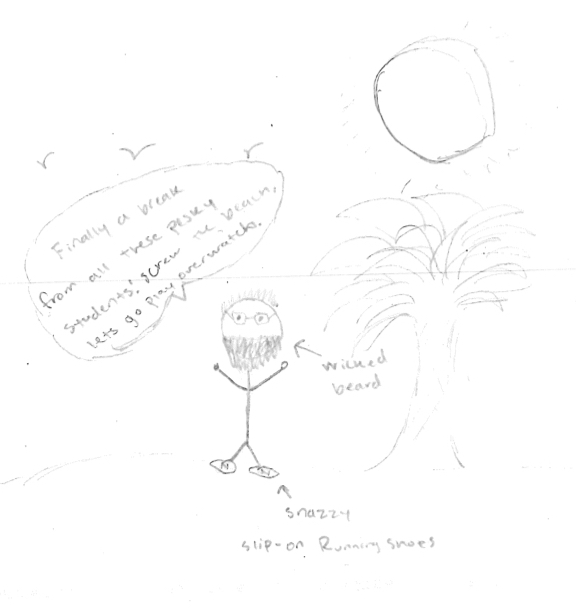 Finally a break
from all these pesky
students! screw the beach,
lets go play overwatch.
wicked
beard
snazzy
slip-on Running shoes